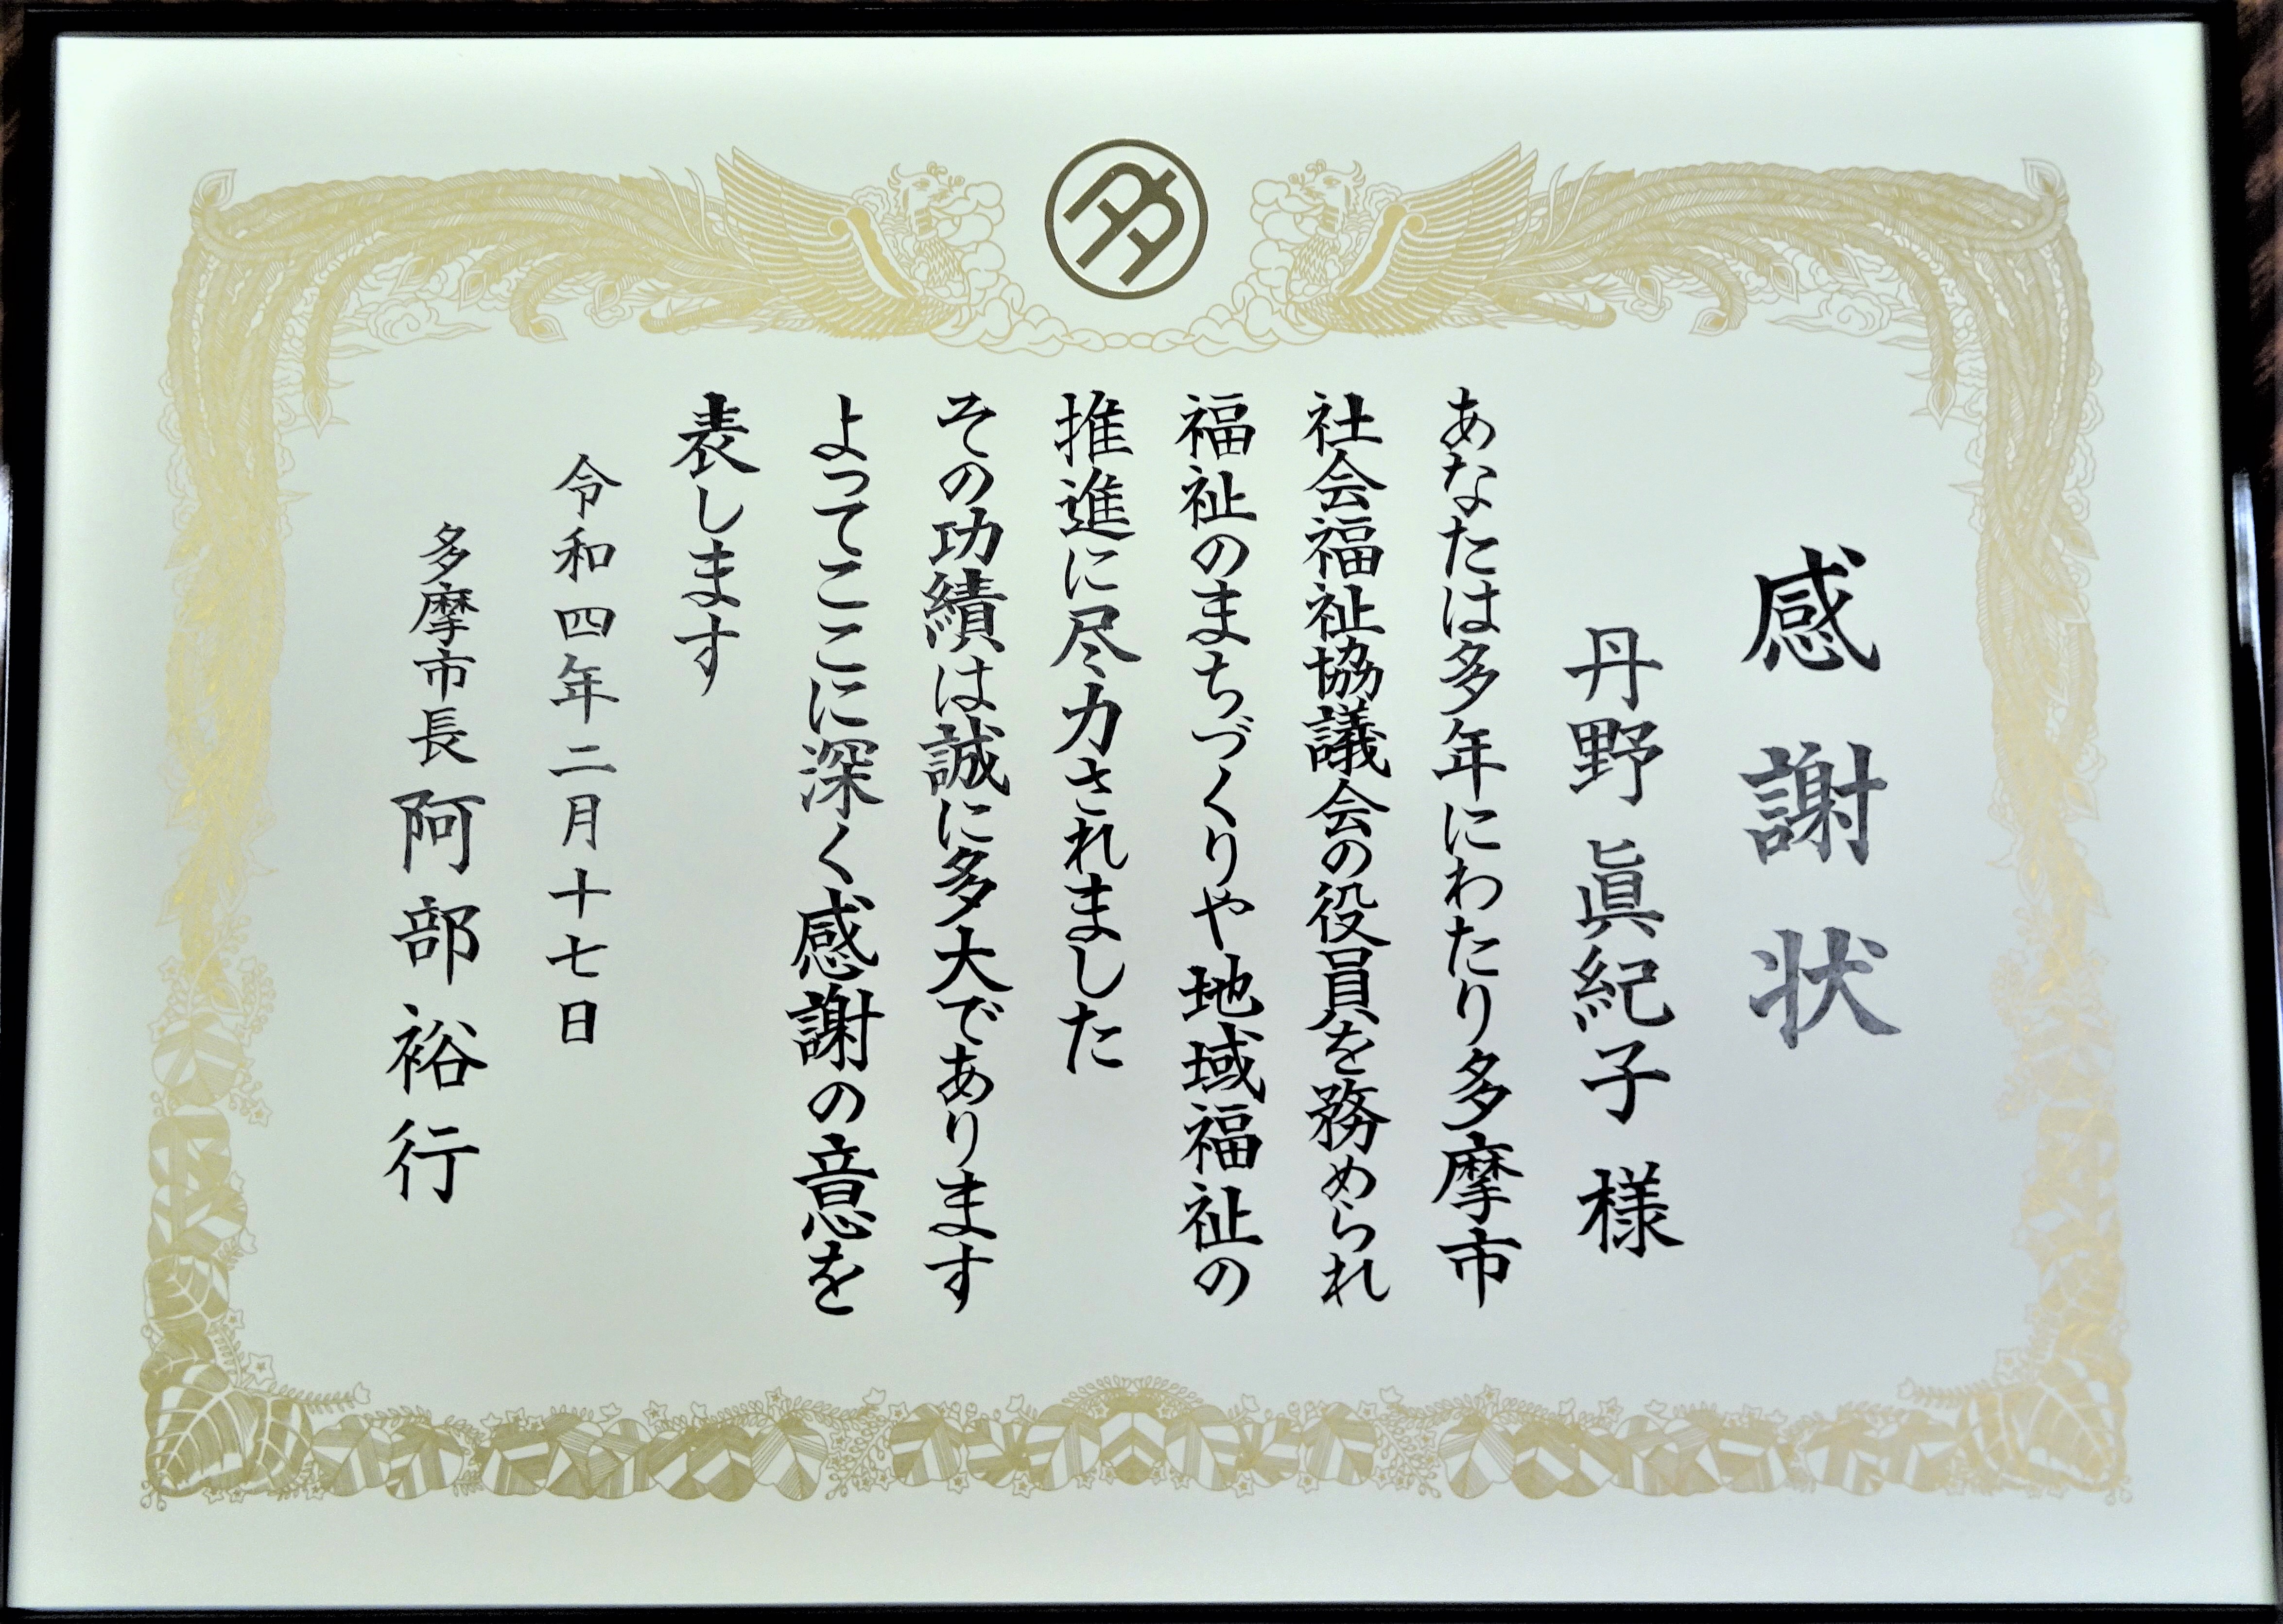 感謝状
丹野眞紀子様
あなたは多年にわたり多摩市
社会福祉協議会の役員を務められ
福祉のまちづくりや地域福祉の
推進に尽力されました
その功績は誠に多大であります
よってここに深く感謝の意を
表します
令和四年二月十七日
多摩市長 阿部裕行